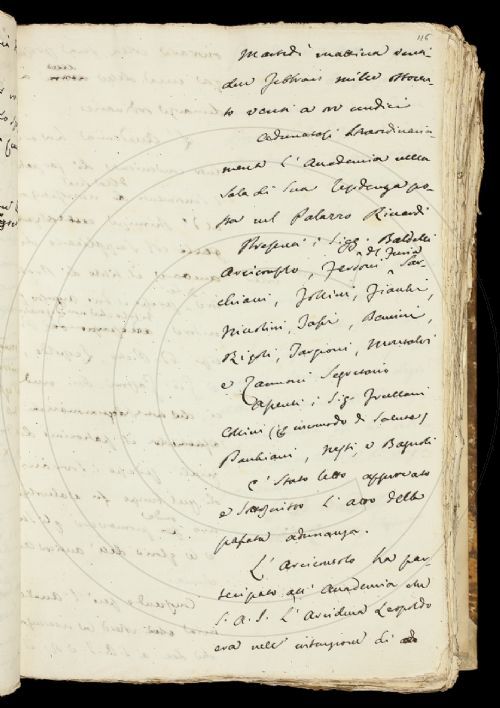 116
Martedì mattina venti
due Febbraio mille ottocen
to venti a ore undici
Adunatasi straordinaria-
mente l'Accademia nella
Sala di Sua residenza po-
sta nel Palazzo Riccardi
Presenti i Sigg. Baldelli
Arciconsolo, Ferroni, del Furia, Sar-
chiani, Follini, Fiacchi,
Niccolini,
Rigoli, Targioni,
e Zannoni Segretario
Assenti i Sig. Frullani
Collini (per incomodo di salute)
, Nesti, e Bagnoli
È stato letto approvato
e sottoscritto l'atto della
passata adunanza.
L'Arciconsolo ha par-
tecipato all'Accademia che
S. A. I. l'Arciduca Leopoldo
era nell'intenzione di